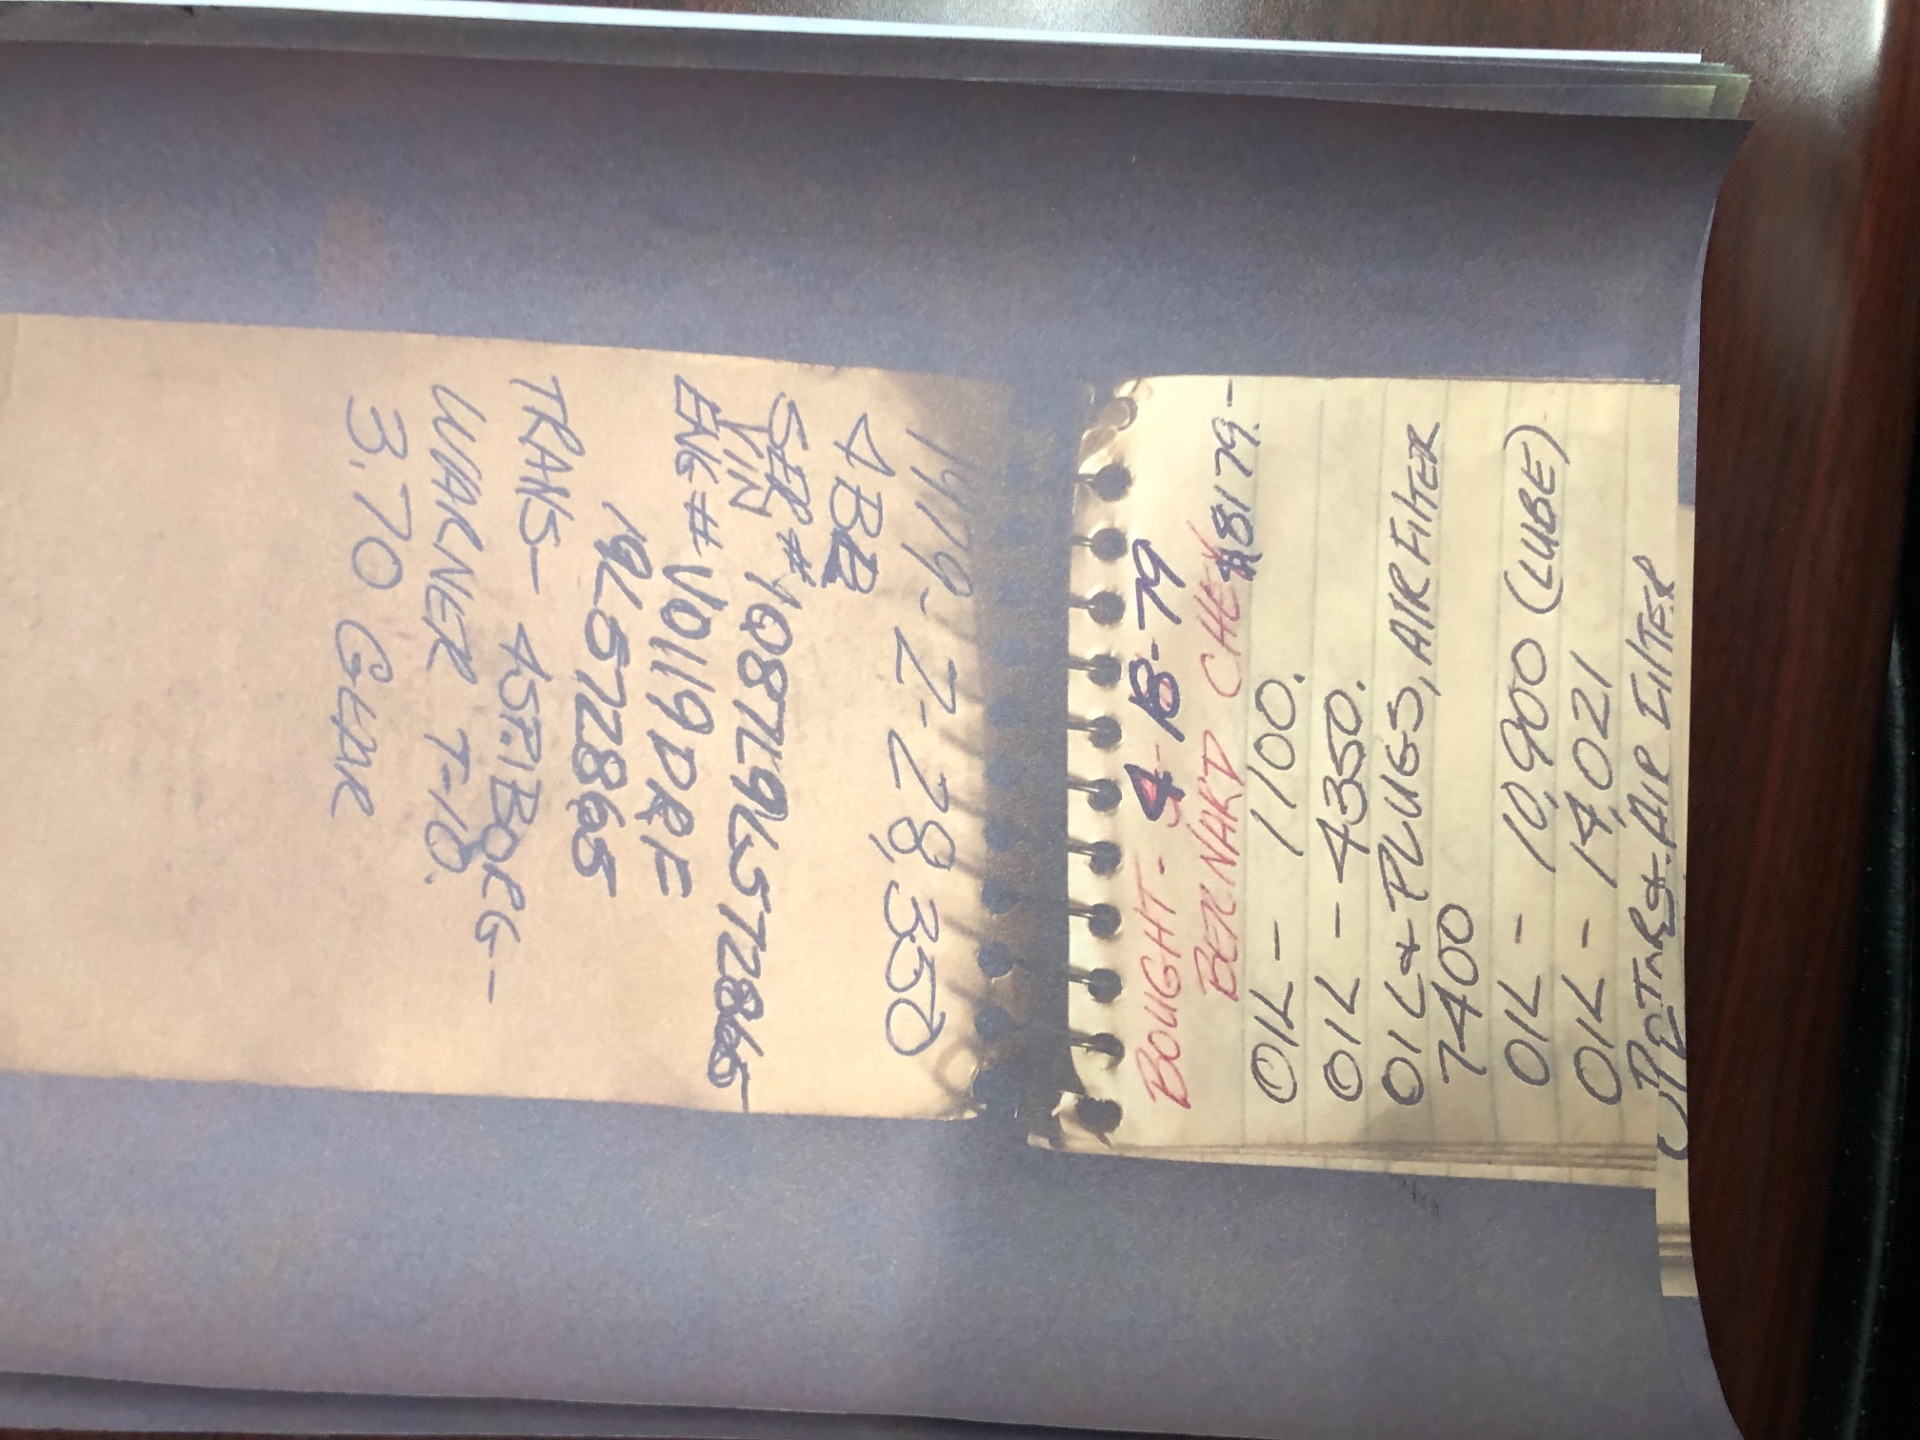 1979- Z-28 350
4 BB
SER # 1Q87L9L572865
VIN
ENG # V0119DRF
19L572865
TRANS- 4SP. BORG-
WARNER T-10.
3.70 GEAR
BOUGHT- 4-18-79
BERNARD CHEV
$8179.-
OIL - 1100.
OIL - 4350.
OIL + PLUGS, AIR FILTER
7400
OIL - 10,900 (LUBE)
OIL - 14,021
AIR FILTER